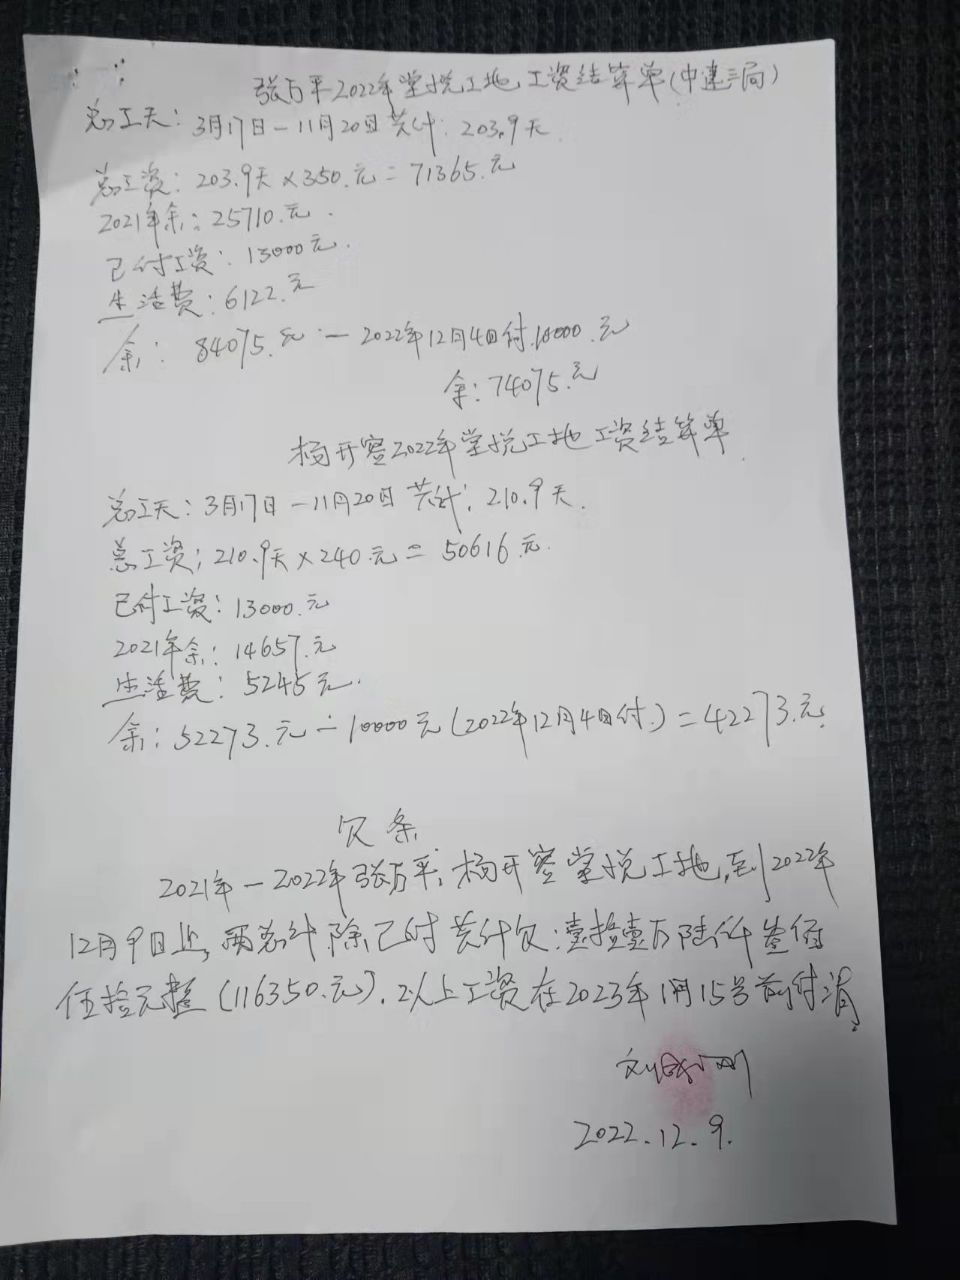 张万平2022年堂悦工地工资结算单(中建三局)
总工天：3月17日－11月20日共计：203.9天
总工资：203.9天×350.元=71365.元
2021年余：25710.元.
已付工资：13000元.
生活费：6122.元
余：84075.元－2022年12月4日付10000.元
余：74075.元
杨开密2022年堂悦工地工资结算单
总工天：3月17日－11月20日共计：210.9天.
总工资：210.9天×240元=50616元.
已付工资：13000.元
2021年余：14657.元
生活费：5245元.
余：52273.元－10000元(2022年12月4日付.)=42273.元
欠条
2021年－2022年张万平，杨开密堂悦工地，到2022年
12月9日止，两总计除已付共计欠：壹拾壹万陆仟叁佰
伍拾元整(116350.元).以上工资在2023年1月15号前付清
2022.12.9.